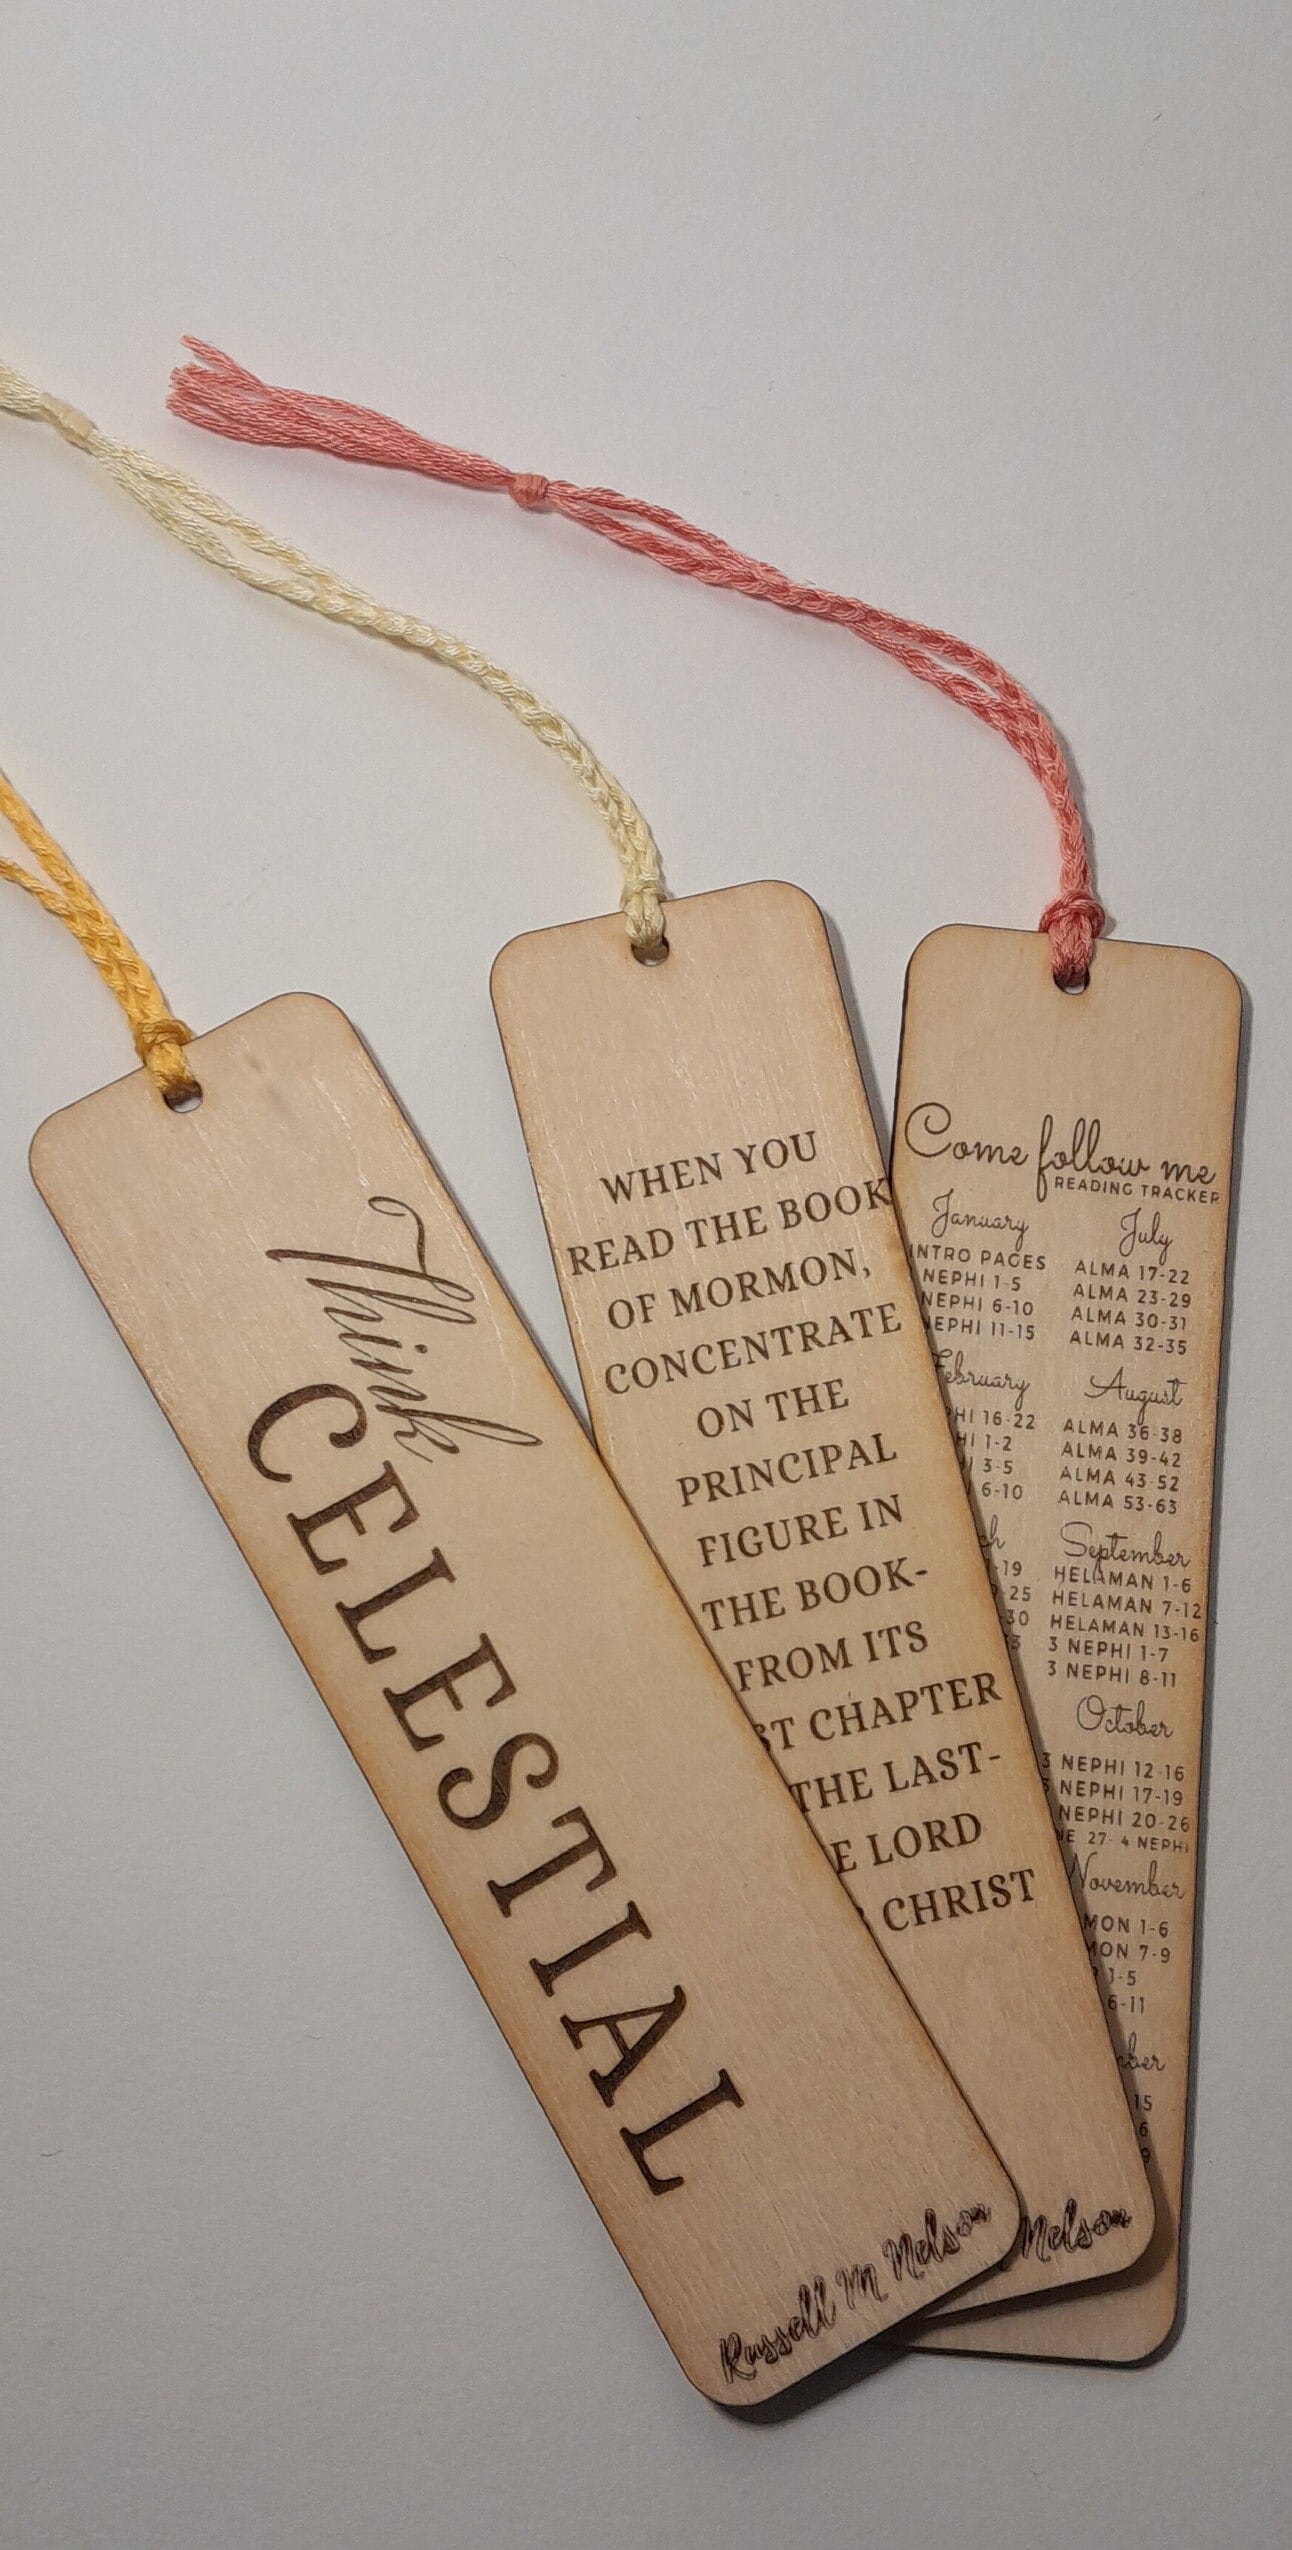 Think
CELESTIAL
Russell M Nelson
WHEN YOU
READ THE BOOK
OF MORMON,
CONCENTRATE
ON THE
PRINCIPAL
FIGURE IN
THE BOOK-
FROM ITS
CHAPTER
THE LAST-
LORD
CHRIST
Nelson
Come follow me
READING TRACKER
January
INTRO PAGES
NEPHI 1-5
NEPHI 6-10
NEPHI 11-15
February
16-22
1-2
3-5
6-10
-19
-25
-30
July
ALMA 17-22
ALMA 23-29
ALMA 30-31
ALMA 32-35
August
ALMA 36-38
ALMA 39-42
ALMA 43-52
ALMA 53-63
September
HELAMAN 1-6
HELAMAN 7-12
HELAMAN 13-16
3 NEPHI 1-7
3 NEPHI 8-11
October
3 NEPHI 12-16
3 NEPHI 17-19
NEPHI 20-26
27- 4 NEPHI
November
1-6
7-9
1-5
6-11
15
6
9